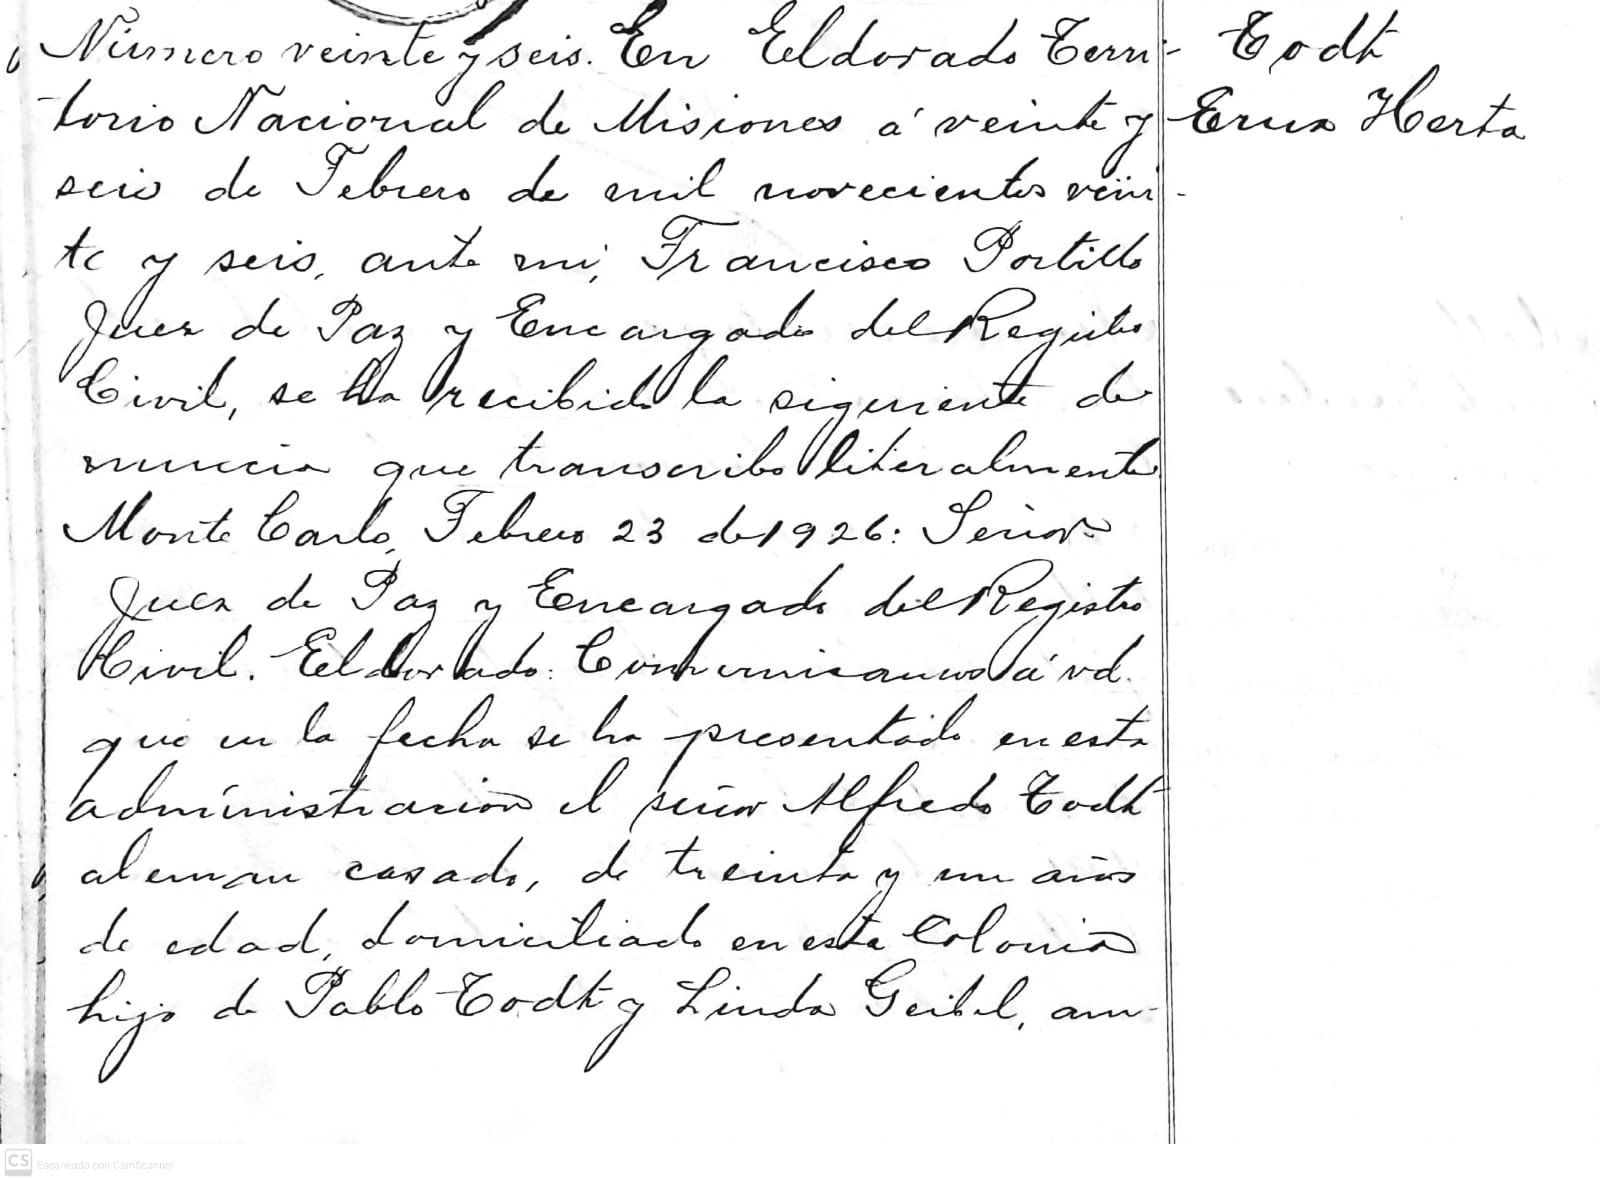 Número veinte y seis. En Eldorado Terri- Todt
torio Nacional de Misiones á veinte y Erna Herta
seis de Febrero de mil novecientos vein-
te y seis, ante mi, Francisco Portillo
Juez de Paz y Encargado del Registro
Civil, se ha recibido la siguiente de
nuncia que transcribo literalmente
Monte Carlo, Febrero 23 de 1926: Señor
Juez de Paz y Encargado del Registro
Civil. Eldorado: Comunicamos á vd.
que en la fecha se ha presentado en esta
administracion el señor Alfredo Todt
aleman casado, de treinta y un años
de edad, domiciliado en esta Colonia
hijo de Pablo Todt y Linda Geibel, am-
CS Escaneado con CamScanner